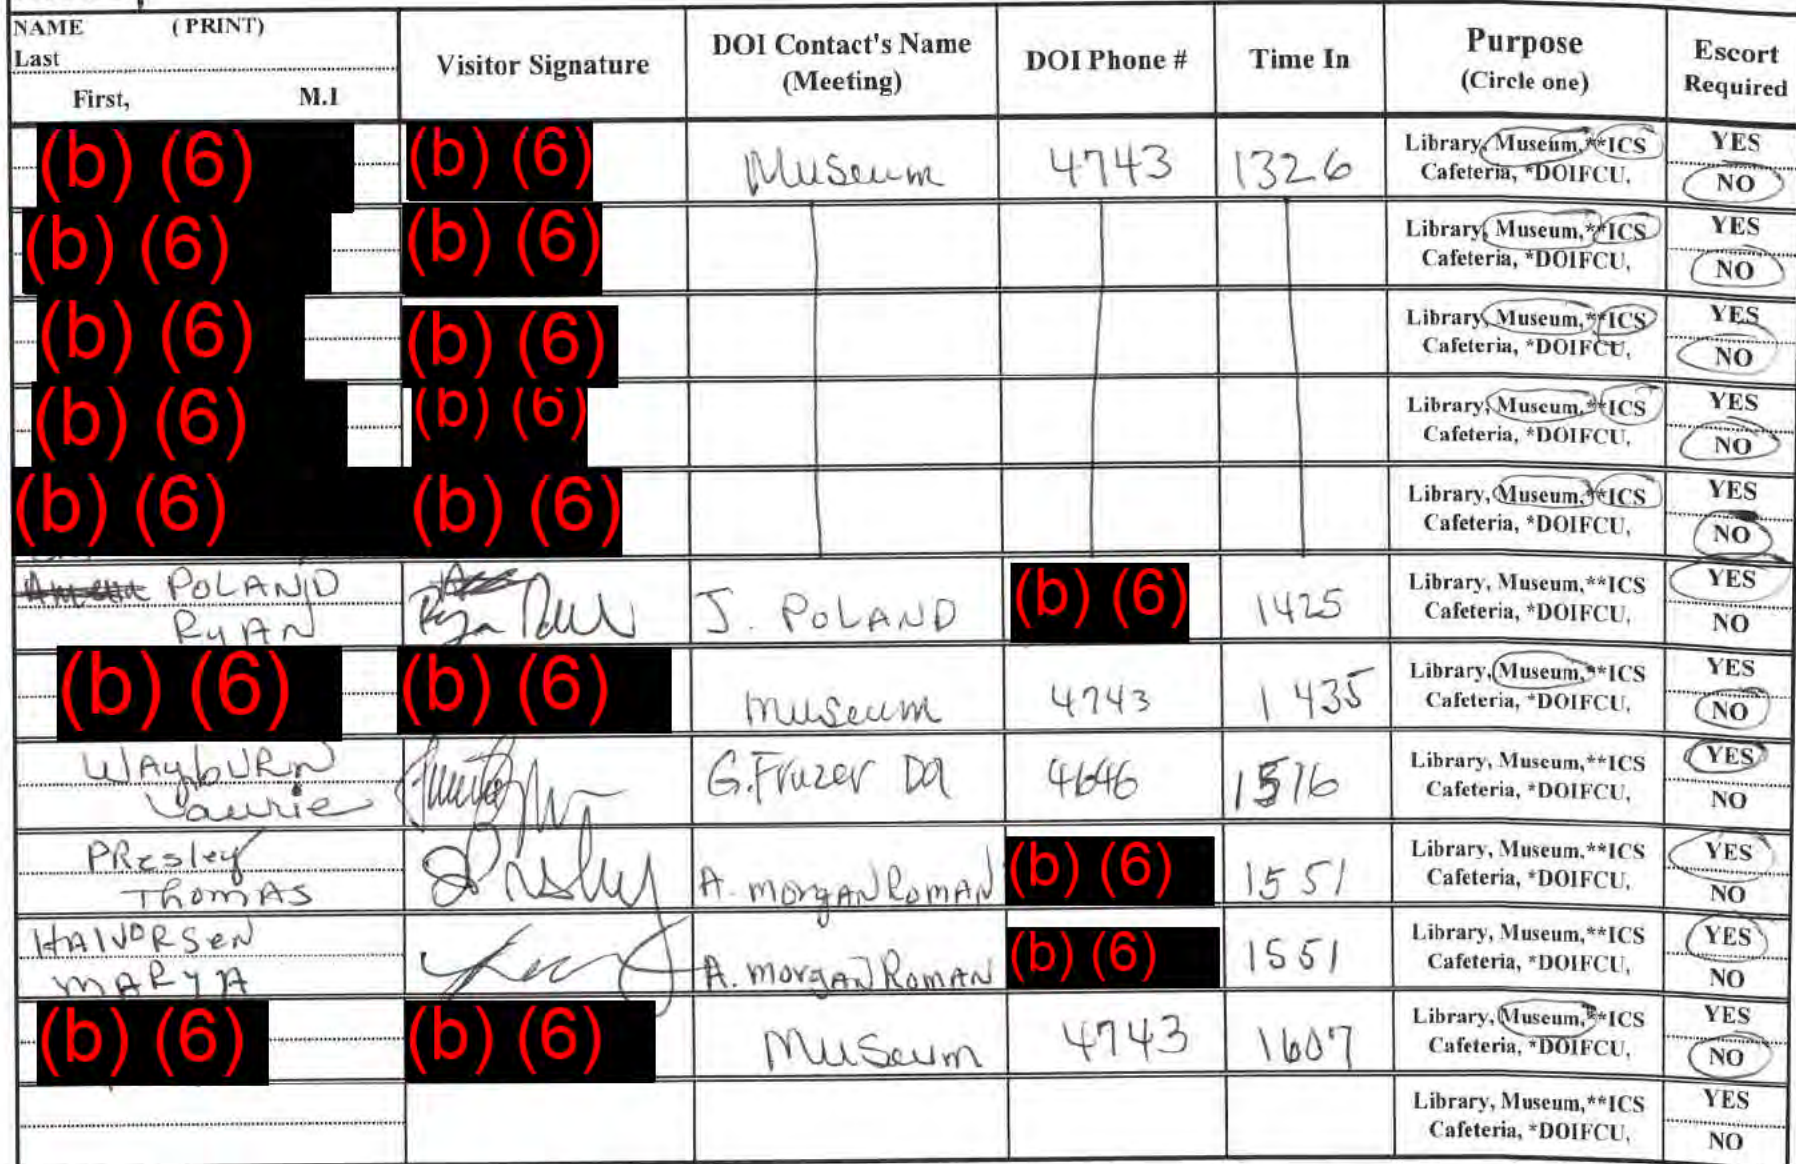 NAME (PRINT)
Last
First, M.I
Visitor Signature
DOI Contact's Name
(Meeting)
DOI Phone #
Time In
Purpose
(Circle one)
Escort
Required
(b) (6) (b) (6) Museum 4743 1326 Library, Museum,**ICS YES
Cafeteria, *DOIFCU, NO
(b) (6) (b) (6) Library, Museum,**ICS YES
Cafeteria, *DOIFCU, NO
(b) (6) (b) (6) Library, Museum,**ICS YES
Cafeteria, *DOIFCU, NO
(b) (6) (b) (6) Library, Museum,**ICS YES
Cafeteria, *DOIFCU, NO
(b) (6) (b) (6) Library, Museum,**ICS YES
Cafeteria, *DOIFCU, NO
POLAND J. POLAND (b) (6) 1425 Library, Museum,**ICS YES
RYAN Cafeteria, *DOIFCU, NO
(b) (6) (b) (6) museum 4743 1435 Library, Museum,**ICS YES
Cafeteria, *DOIFCU, NO
WAYbURN G. Frazer 4646 1516 Library, Museum,**ICS YES
Laurie Cafeteria, *DOIFCU, NO
PResley A. morgan Roman (b) (6) 1551 Library, Museum,**ICS YES
ThomAS Cafeteria, *DOIFCU, NO
HAlVORSen A. morgan Roman (b) (6) 1551 Library, Museum,**ICS YES
MARYA Cafeteria, *DOIFCU, NO
(b) (6) (b) (6) Museum 4743 1607 Library, Museum,**ICS YES
Cafeteria, *DOIFCU, NO
Library, Museum,**ICS YES
Cafeteria, *DOIFCU, NO